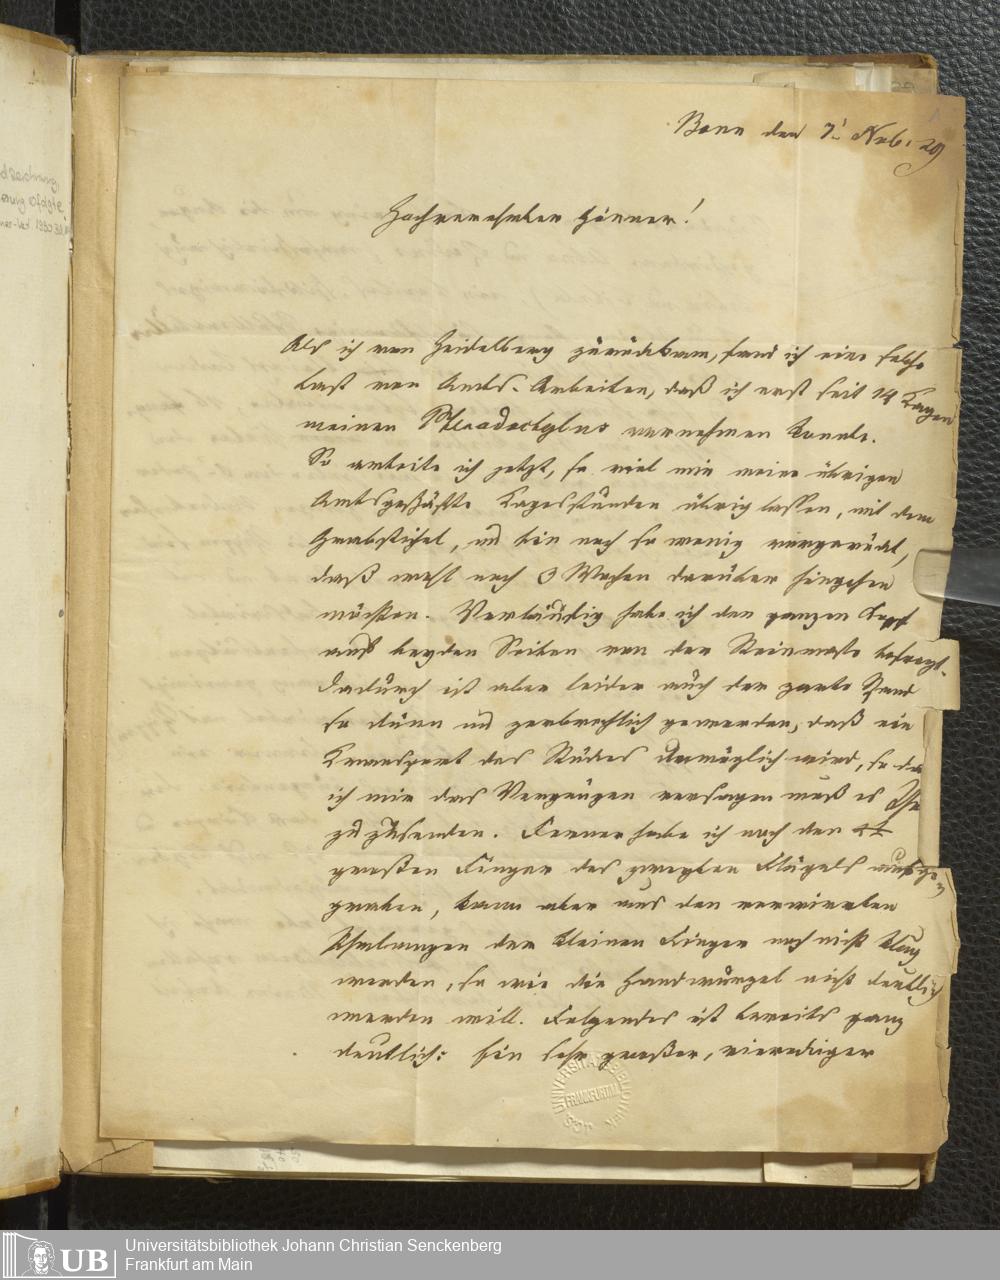 Bonn den 7t Nvb. 29
Hochverehrter Gönner!
Als ich von Heidelberg zurückkam, fand ich eine solche
Last von Amts-Arbeiten, daß ich erst seit 14 Tagen
meinen Pterodactylus vornehmen konnte.
So arbeite ich jetzt, so viel mir meine übrigen
Amtsgeschäfte Tagesstunden übrig lassen, mit dem
Grabstichel, und bin noch so wenig vorgerückt,
daß wohl noch 3 Wochen darüber hingehen
möchten. Vorläufig habe ich den ganzen Kopf
auf beyden Seiten von der Steinmasse befreyt.
Dadurch ist aber leider auch der zarte Rand
so dünn und zerbrechlich geworden, daß ein
Transport des Stückes unmöglich wird, so daß
ich mir das Vergnügen versagen muß es Ihn
zuzusenden. Ferner habe ich noch den
großen Finger des zweyten Flügels ausge
graben, kann aber aus den verwirrten
Phalangen der kleinen Finger noch nicht klug
werden, so wie die Handwurzel nicht deutlich
werden will. Folgendes ist bereits ganz
deutlich: Ein sehr großer, viereckiger
UNIVERSITÄTS BIBLIOTHEK
FRANKFURT A.M.
UB
Universitätsbibliothek Johann Christian Senckenberg
Frankfurt am Main